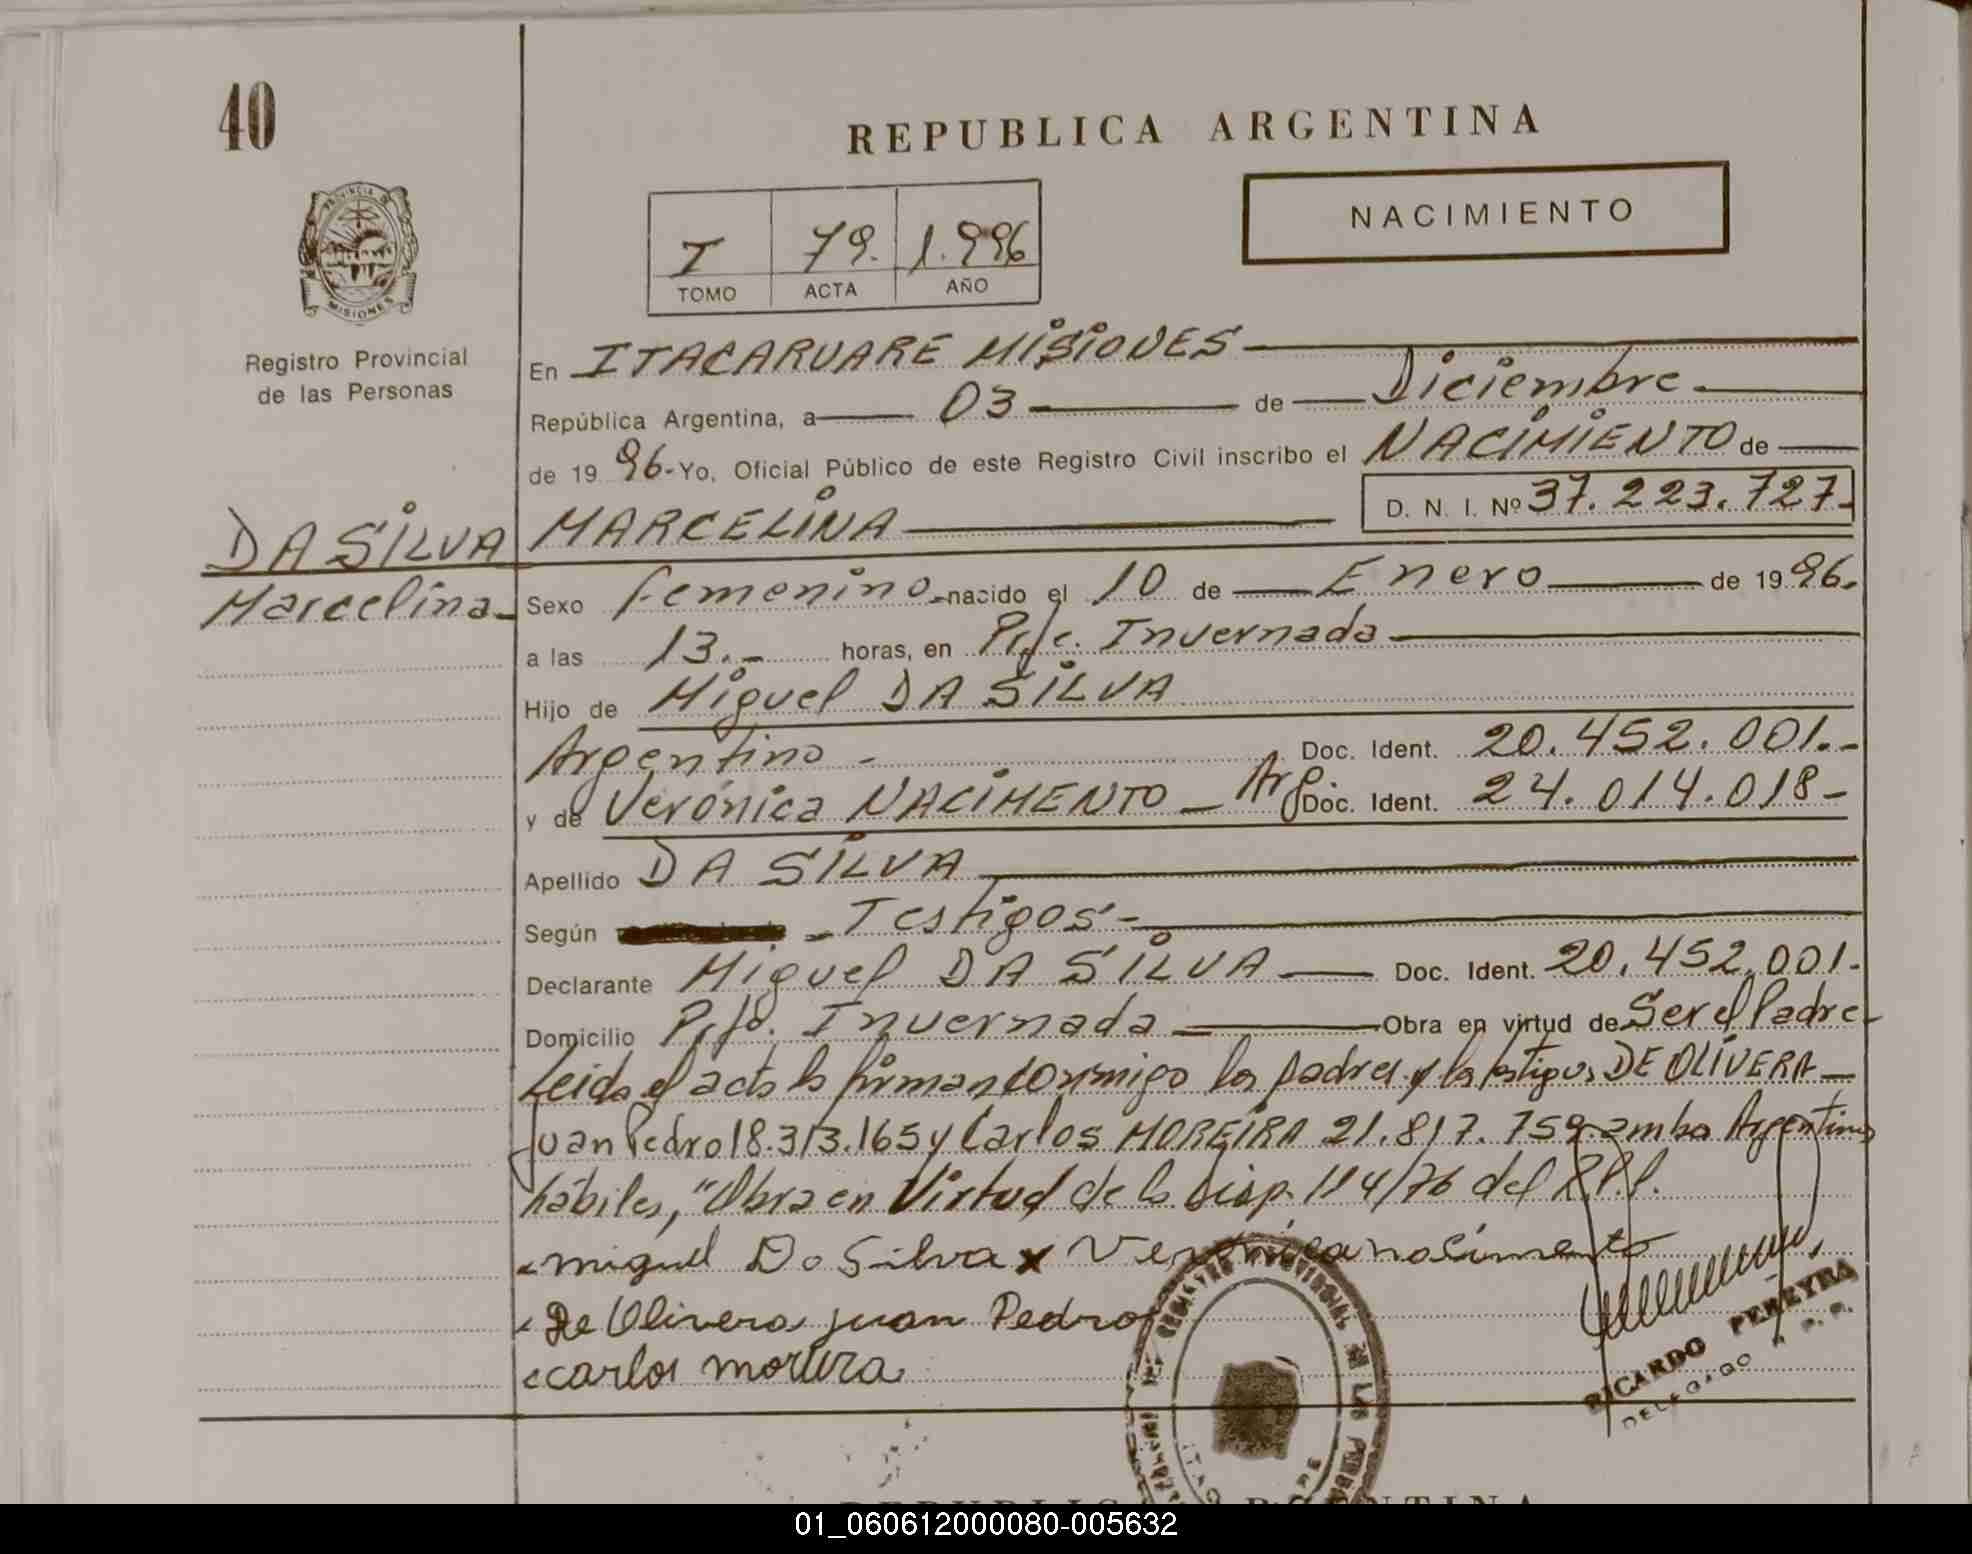 40
REPUBLICA ARGENTINA
NACIMIENTO
PROVINCIA DE
MISIONES
I 79. 1.996
TOMO ACTA AÑO
Registro Provincial
de las Personas
En ITACARUARE MISIONES
República Argentina, a 03 de Diciembre
de 19 96.- Yo, Oficial Público de este Registro Civil inscribo el NACIMIENTO de
D. N. I. Nº 37.223.727-
DA SILVA MARCELINA
Marcelina Sexo femenino nacido el 10 de Enero de 19 96.
a las 13.- horas, en Pje. Invernada
Hijo de Miguel DA SILVA
Argentino - Doc. Ident. 20.452.001.-
y de Verónica NACIMENTO - Arg. Doc. Ident. 24.014.018-
Apellido DA SILVA
Según - Testigos -
Declarante Miguel DA SILVA Doc. Ident. 20.452.001.
Domicilio Pje. Invernada Obra en virtud de Ser el Padre
Leida el acta la firman conmigo los padres y los testigos DE OLIVERA
Juan Pedro 18.313.165 y Carlos MOREIRA 21.817.759. ambos Argentinos
hábiles, "Obra en Virtud de la Disp. 114/76 del R.P.P.
miguel Da Silva x Verónica nacimento
De Olivera juan Pedro
carlos moreira
RICARDO PEREYRA
DELEGADO R. P. P.
REPUBLICA ARGENTINA
01_060612000080-005632